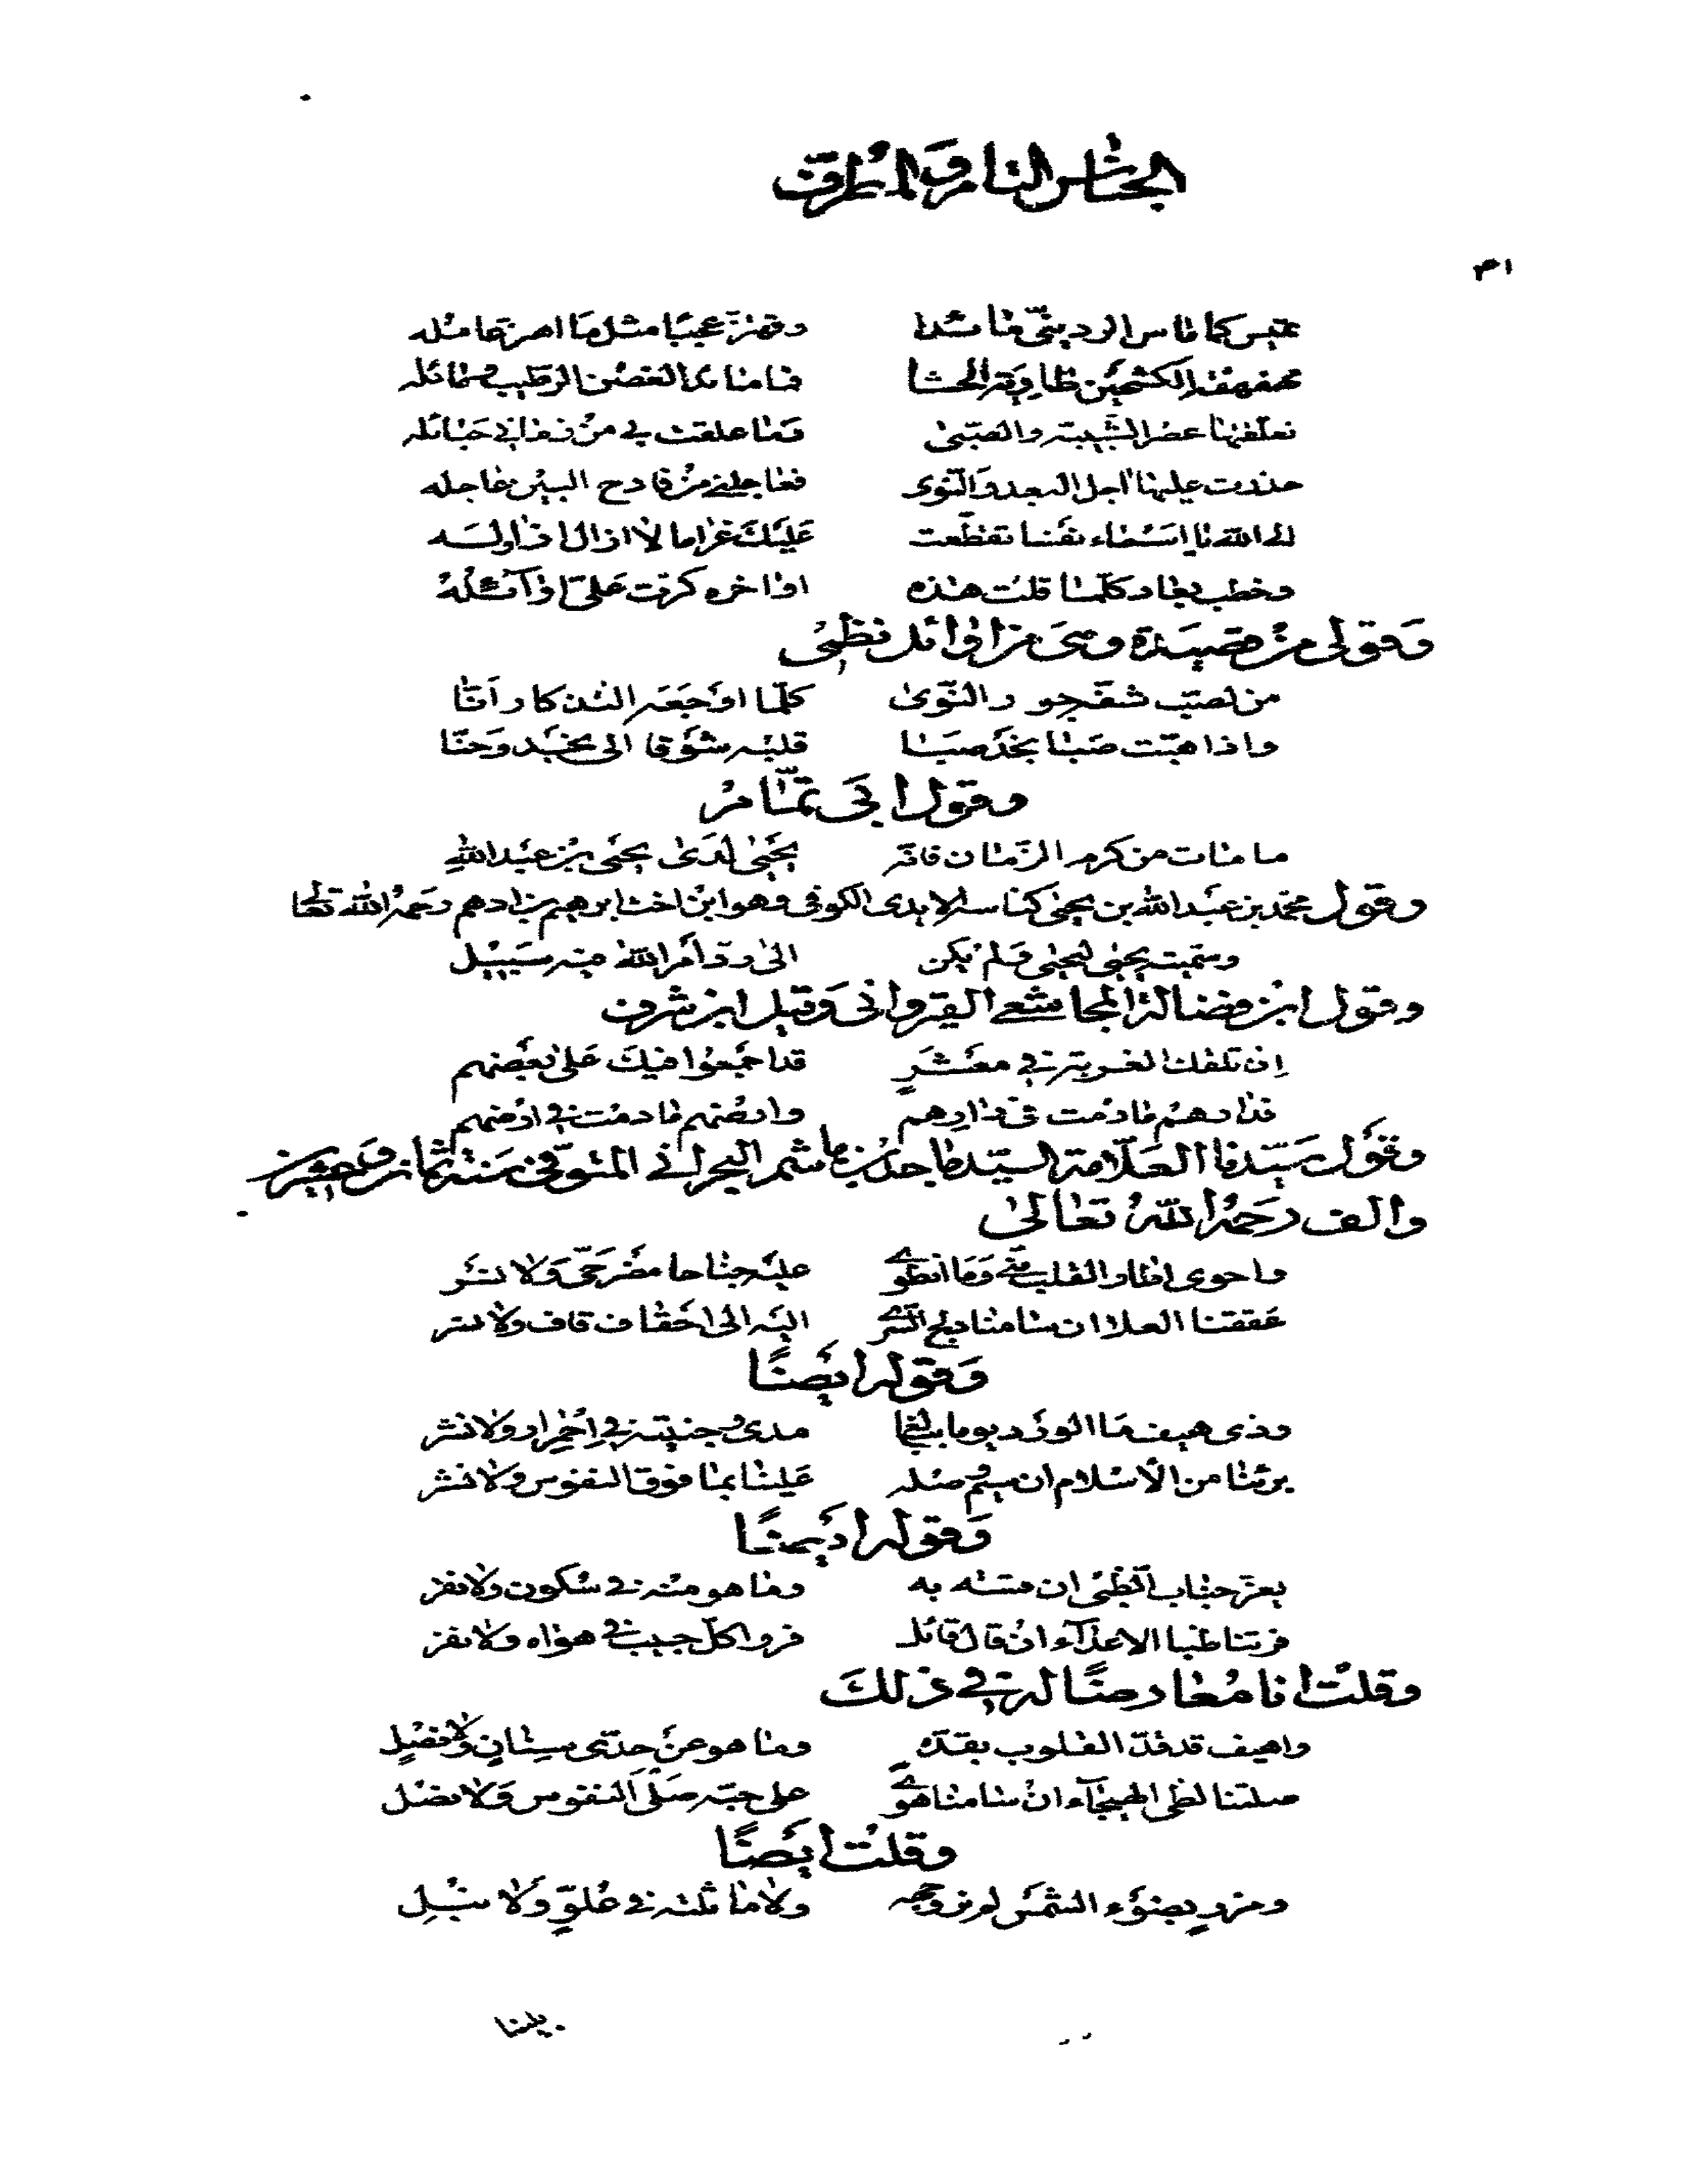 الجناس التام والمطرف
٣١
تميس كما ماس الرديني مائدا وتهتز عجبا مثل ما اهتز عامله
مهفهفة الكشحين طاوية الحشا فما مائد الغصن الرطيب ومائله
تعلقتها عصر الشبيبة والصبى وما علقت بي من زماني حبائله
حذرت عليها اجل البعد والنوى فعاجلني من فادح البين عاجله
الى الله يا اسماء نفسا تقطعت عليك غراما لا ازال ازاوله
وخطب بعاد كلما قلت هذه اواخره كرت علي اوائله
وقولى من قصيدة وهى من اوائل نظمى
من لصب شفه جور النوى كلما اوجعه التذكار انا
واذا هبت صبا نجد صبا قلبه شوقا الى نجد وحنا
وقول ابى تمام
ما مات من كرم الزمان فانه يحيى لدى يحيى بن عبد الله
وقول محمد بن عبد الله بن يحيى كناسة الاسدى الكوفى وهو ابن اخت ابرهيم بن ادهم رحمه الله تعالى
وسميته يحيى ليحيى فلم يكن الى رد امر الله فيه سبيل
وقول ابن فضالة المجاشعي القيروانى وقيل ابن شرف
ان تلقك الغربة في معشر قد اجمعوا فيك على بغضهم
فدارهم ما دمت في دارهم وارضهم ما دمت في ارضهم
وقول سيدنا العلامة السيد ماجد بن هاشم البحراني المتوفى سنة ثمان وعشرين
والف رحمه الله تعالى
واحوى اطار القلب مني وما انطوى عليه جناحا مضرحى ولا نسر
عققنا العلا ان سامنا دلج السرى اليه الى احقاف قاف ولا نسر
وقوله ايضا
وذى هيف ما الورد يوما ببالغ مدى وجنتيه في احمرار ولا نشر
برئنا من الاسلام ان سيم وصله علينا بما فوق النفوس ولا نشر
وقوله ايضا
يعز جناب الظبى ان مسته به وما هو منه في سكون ولا نفر
فرتنا ظبا الاعداء ان قال قائل فروا كل جيب في هواه ولا نفر
وقلت انا معارضا له في ذلك
واهيف قد قد القلوب بقده وما هو عن حدى سنان ولا نصل
صلتنا لظى الهيجاء ان سامنا هوى على حبه صلى النفوس ولا نصل
وقلت ايضا
وحزور بضوء الشمس وجهه ولا ماثلته في علو ولا نبل
بلينا